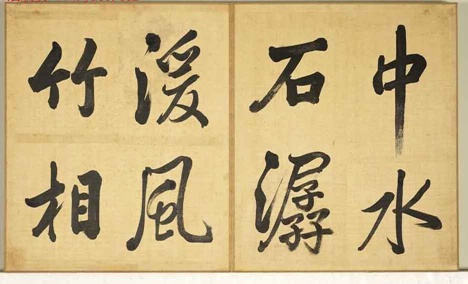 中水
石潺
湲風
竹相